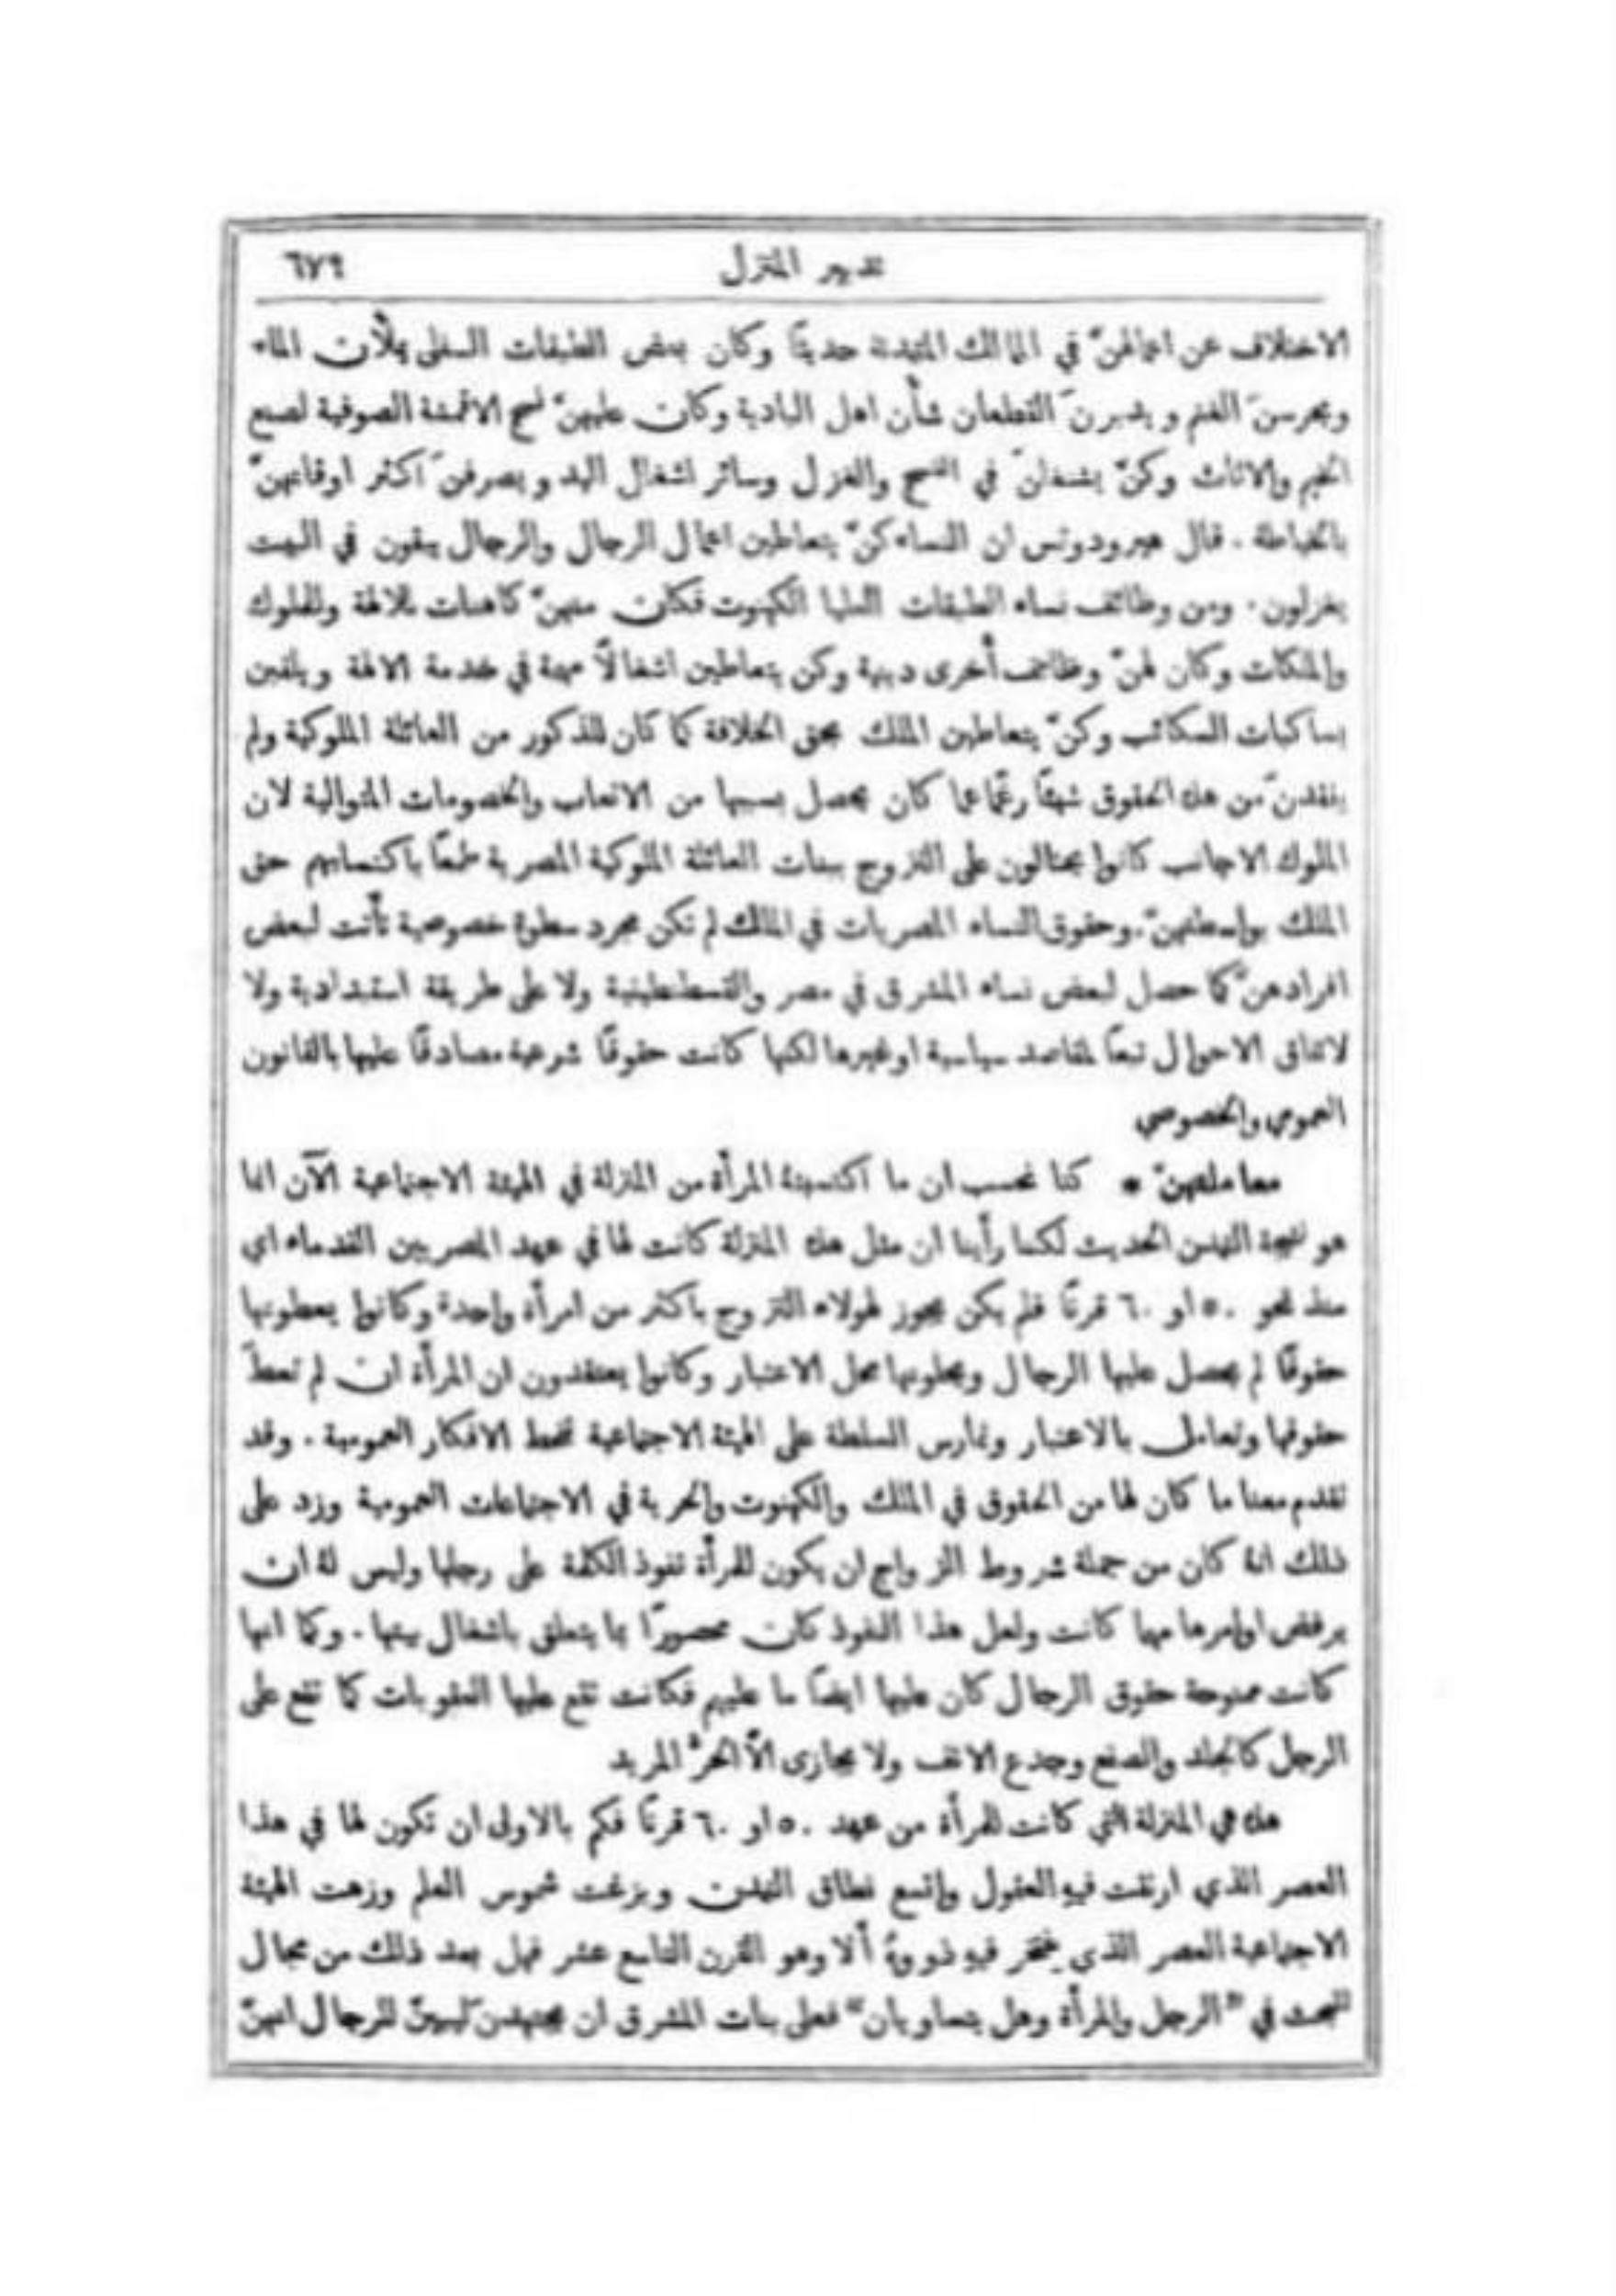 تدبير المنزل ٦٧٩
الاختلاف عن اعمالهنَّ في الممالك المتمدنة حديثًا وكان بعض الطبقات السفلى يملأن الماء
ويحرسنَ الغنم ويدبرنَ القطعان شأن اهل البادية وكان عليهنَّ نسج الاقمشة الصوفية لصنع
الخيم والاثاث وكنَّ يشتغلنَ في النسج والغزل وسائر اشغال اليد ويصرفنَ اكثر اوقاتهنَّ
بالخياطة . قال هيرودوتس ان النساء كنَّ يتعاطين اعمال الرجال والرجال يبقون في البيت
يغزلون . ومن وظائف نساء الطبقات العليا الكهنوت فكان منهنَّ كاهنات للالهة وللملوك
والملكات وكان لهنَّ وظائف أخرى دينية وكن يتعاطين اشغالًا مهمة في خدمة الالهة ويلقبن
بساكبات السكائب وكنَّ يتعاطين الملك بحق الخلافة كما كان للذكور من العائلة الملوكية ولم
يفقدنَ من هذه الحقوق شيئًا رغمًا عما كان يحصل بسببها من الاتعاب والخصومات المتوالية لان
الملوك الاجانب كانوا يحتالون على التزوج ببنات العائلة الملوكية المصرية طمعًا باكتسابهم حق
الملك بواسطتهنَّ. وحقوق النساء المصريات في الملك لم تكن مجرد سطوة خصوصية تأتت لبعض
افرادهنَّ كما حصل لبعض نساء المشرق في مصر والقسطنطينية ولا على طريقة استبدادية ولا
لاتفاق الاحوال تبعًا لمقاصد سياسية او غيرها لكنها كانت حقوقًا شرعية مصادقًا عليها بالقانون
العمومي والخصوصي
معاملتهنَّ * كنا نحسب ان ما اكتسبتهُ المرأة من المنزلة في الهيئة الاجتماعية الآن انما
هو نتيجة التمدن الحديث لكننا رأينا ان مثل هذه المنزلة كانت لها في عهد المصريين القدماء اي
منذ نحو ٥٠ او ٦٠ قرنًا فلم يكن يجوز لهولاء التزوج باكثر من امرأة واحدة وكانوا يعطونها
حقوقًا لم يحصل عليها الرجال ويحلونها محل الاعتبار وكانوا يعتقدون ان المرأة ان لم تعطَ
حقوقها وتعامل بالاعتبار وتمارس السلطة على الهيئة الاجتماعية تنحط الافكار العمومية . وقد
تقدم معنا ما كان لها من الحقوق في الملك والكهنوت والحرية في الاجتماعات العمومية وزد على
ذلك انهُ كان من جملة شروط الزواج ان يكون للمرأة نفوذ الكلمة على رجلها وليس لهُ ان
يرفض اوامرها مهما كانت ولعل هذا النفوذ كان محصورًا بما يتعلق باشغال بيتها . وكما انها
كانت ممنوحة حقوق الرجال كان عليها ايضًا ما عليهم فكانت تقع عليها العقوبات كما تقع على
الرجل كالجلد والصفع وجدع الانف ولا يجازى الَّا الحرُّ المريد
هذه هي المنزلة التي كانت للمرأة من عهد ٥٠ او ٦٠ قرنًا فكم بالاولى ان تكون لها في هذا
العصر الذي ارتقت فيهِ العقول واتسع نطاق التمدن وبزغت شموس العلم وزهت الهيئة
الاجتماعية العصر الذي يفتخر فيهِ ذووهُ ألا وهو القرن التاسع عشر فهل بعد ذلك من مجال
للبحث في "الرجل والمرأة وهل يتساويان" فعلى بنات المشرق ان يجتهدنَ ليبينَّ للرجال انهنَّ